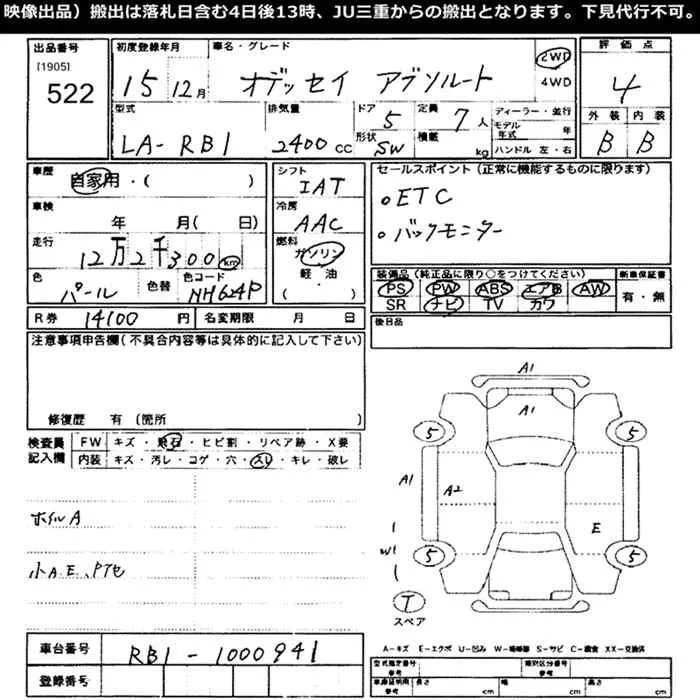 映像出品）搬出は落札日含む4日後13時、JU三重からの搬出となります。下見代行不可。
出品番号 初度登録年月 車名・グレード 評価点
[1905]
522 15 12月 オデッセイ アブソルート 2WD 4WD 4
型式 排気量 ドア 5 定員 7人 ディーラー・並行 外装 内装
LA-RB1 2400cc 形状 SW 積載 kg モデル年式 年 B B
ハンドル 左・右
車歴 自家用・( ) シフト セールスポイント (正常に機能するものに限ります)
IAT
。ETC
車検 年 月( 日) 冷房 AAC
。バックモニター
走行 12万2千300km 燃料 ガソリン
軽油
・( )
色 パール 色替 色コード NH624P
装備品（純正品に限り○をつけてください） 新車保証書
PS PW ABS エアB AW 有・無
SR ナビ TV カワ
R券 14100円 名変期限 月 日
後日品
注意事項申告欄（不具合内容等は具体的に記入して下さい）
修復歴 有（箇所
検査員記入欄 FW キズ・飛石・ヒビ割・リペア跡・X要
内装 キズ・汚レ・コゲ・穴・スレ・キレ・破レ
A1
A1
5 5
A1 A2
E
W1
5 5
ホイルA
小A.E、
T
スペア
車台番号 RB1-1000941
登録番号
A-キズ E-エクボ U-凹み W-補修跡 S-サビ C-腐食 XX-交換済
型式指定番号 類別区分番号
参考 参考
車庫証明用 長さ 幅 高さ
参考 cm cm cm